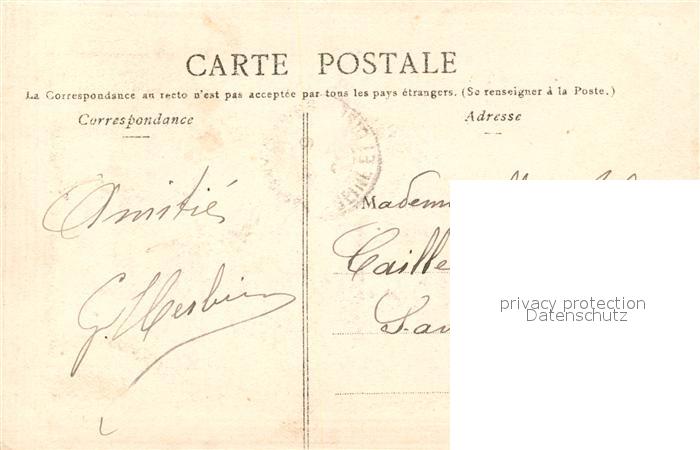 CARTE POSTALE
La Correspondance au recto n'est pas acceptée par tous les pays étrangers. (Se renseigner à la Poste.)
Correspondance
Adresse
Amitiés
G. Herbin
Madem
Caille
Sav
privacy protection
Datenschutz